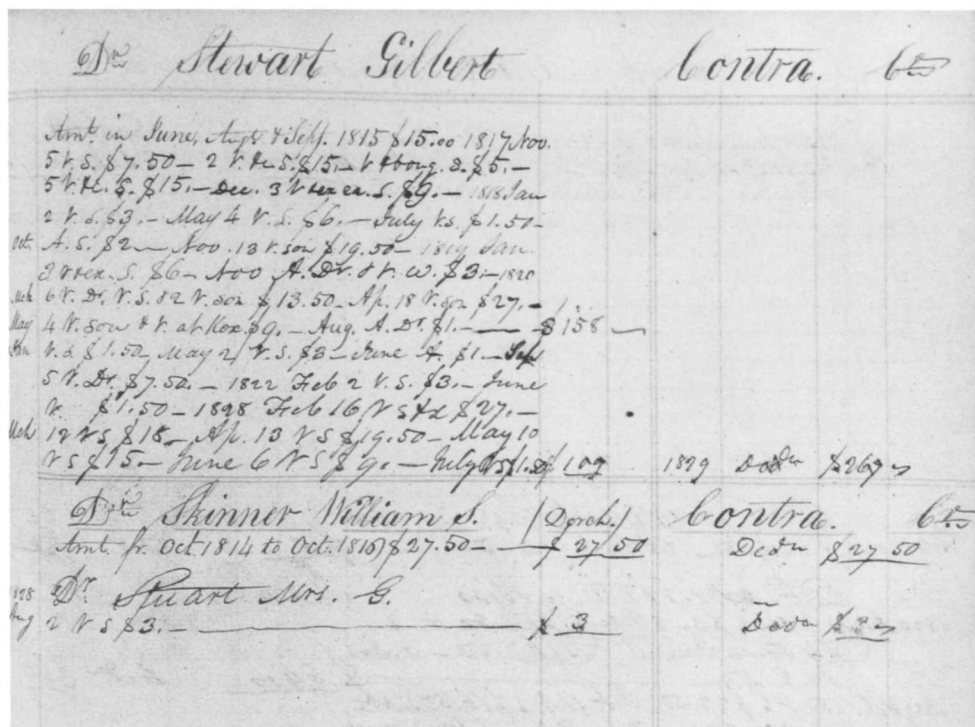 Dr Stewart Gilbert Contra. Crs
Amt. in June, Augt & Sept. 1815 $15.00 1817 Nov.
5 V. S. $7.50 – 2 V. S. $15. – V & S. $5. –
5 V. S. $15. – Dec. 3 V S. $9. – 1818 Jan
2 V. S. $3. – May 4 V. S. $6. – July V.S. $1.50 –
Oct. A. S. $2 – Nov. 13 V. son $19.50 – 1819 Jan.
S. $6 – Nov A. Dr. & V. W. $3. – 1820
Mch 6 V. Dr. V. S. & 2 V. son $13.50 – Ap. 18 V. son $27. –
May 4 V. son & V. at Rox. $9. – Aug. A. Dr. $1. – $158 –
Jan V. $1.50 May 2 V. S. $3 – June A. $1 – Sep
5 V. Dr. $7.50. – 1822 Feb 2 V. S. $3. – June
V. $1.50 – 1828 Feb 16 V S $27. –
Mch 12 V S $18 – Ap. 13 V S $19.50 – May 10
V S $15 – June 6 V S $9. – July V S $1.50 109 1829 $267
Dr Skinner William S. (Dorch.) Contra. Crs
Amt. fr. Oct 1814 to Oct. 1816 $27.50 – $27 50 Dedn $27 50
1828 Dr. Stuart Mrs. G.
Aug 2 V S $3. – $3 Dedn $3